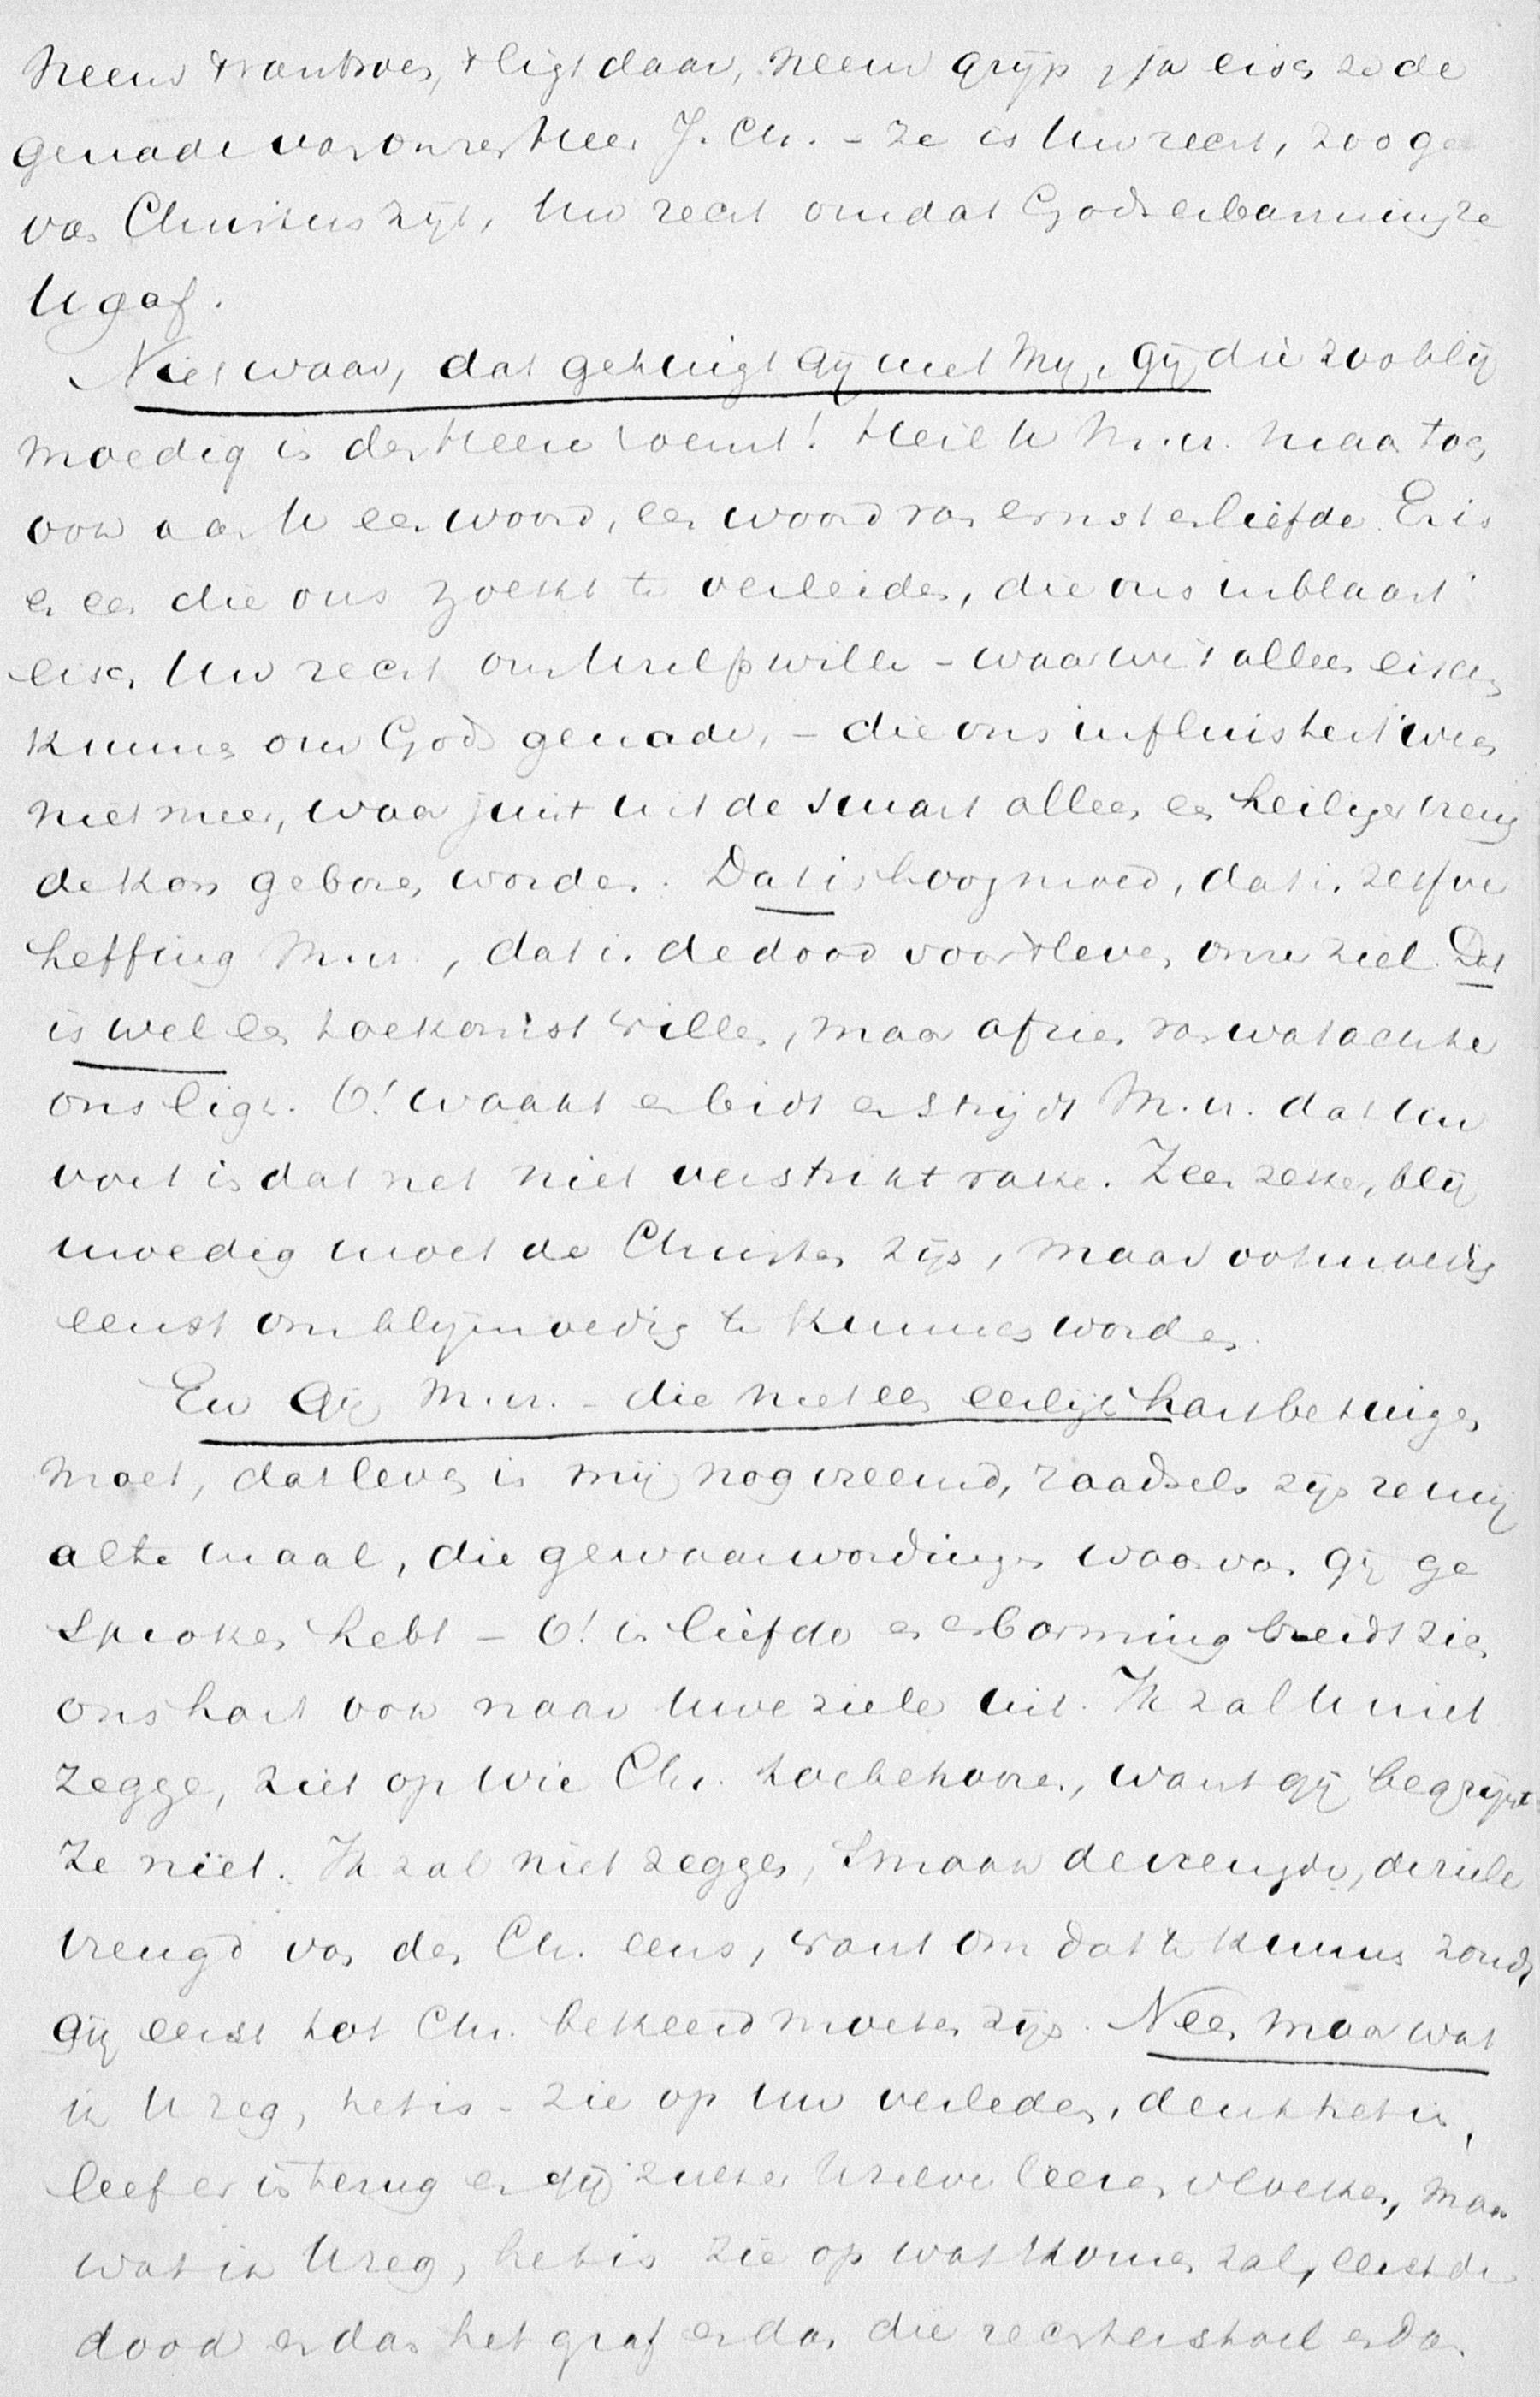 neem & vertrouw, 't ligt daar, neem grijp, ja eisch ze de
genade van onzen Heer J. Chr. – Ze is Uw recht, zoo ge
van Christus zijt, Uw recht omdat Gods erbarming ze
U gaf.
Niet waar, dat getuigt gij met mij, gij die zoo blij
moedig in den Heere roemt! Heil U M.vr. maar toch
ook aan U een woord, een woord van ernst en liefde. Er is
er een die ons zoekt te verleiden, die ons inblaast
eisch Uw recht om Uzelfs wille – waar wij 't alleen eischen
kunnen om Gods genade, – die ons influistert ween
niet meer, waar juist uit de smart alleen een heilige vreug
de kan geboren worden. Dat is hoogmoed, dat is zelfver
heffing M.vr., dat is de dood voor 't leven onzer ziel. Dat
is wel een toekomst willen, maar afzien van wat achter
ons ligt. O! waakt en bidt en strijdt M.vr. dat Uw
voet in dat net niet verstrikt rake. Zeer zeker, blij
moedig moet de Christen zijn, maar ootmoedig
eerst om blijmoedig te kunnen worden.
En gij M.vr. – die met een eerlijk hart betuigen
moet, dat leven is mij nog vreemd, raadsels zijn ze mij
altemaal, die gewaarwordingen waarvan gij ge
sproken hebt – O! in liefde en erbarming breidt zich
ons hart ook naar Uwe zielen uit. Ik zal U niet
zeggen, ziet op wie Chr. toebehooren, want gij begrijpt
ze niet. Ik zal niet zeggen, smaak de vreugde, de ziele
vreugd van den Chr. eens, want om dat te kunnen zoudt
gij eerst tot Chr. bekeerd moeten zijn. Neen maar wat
ik U zeg, het is – zie op Uw verleden, denk het in,
leef er in terug en gij zult er Uzelve leeren vloeken, maar
wat ik U zeg, het is zie op wat komen zal, eerst de
dood en dan het graf en dan die rechterstoel en dan